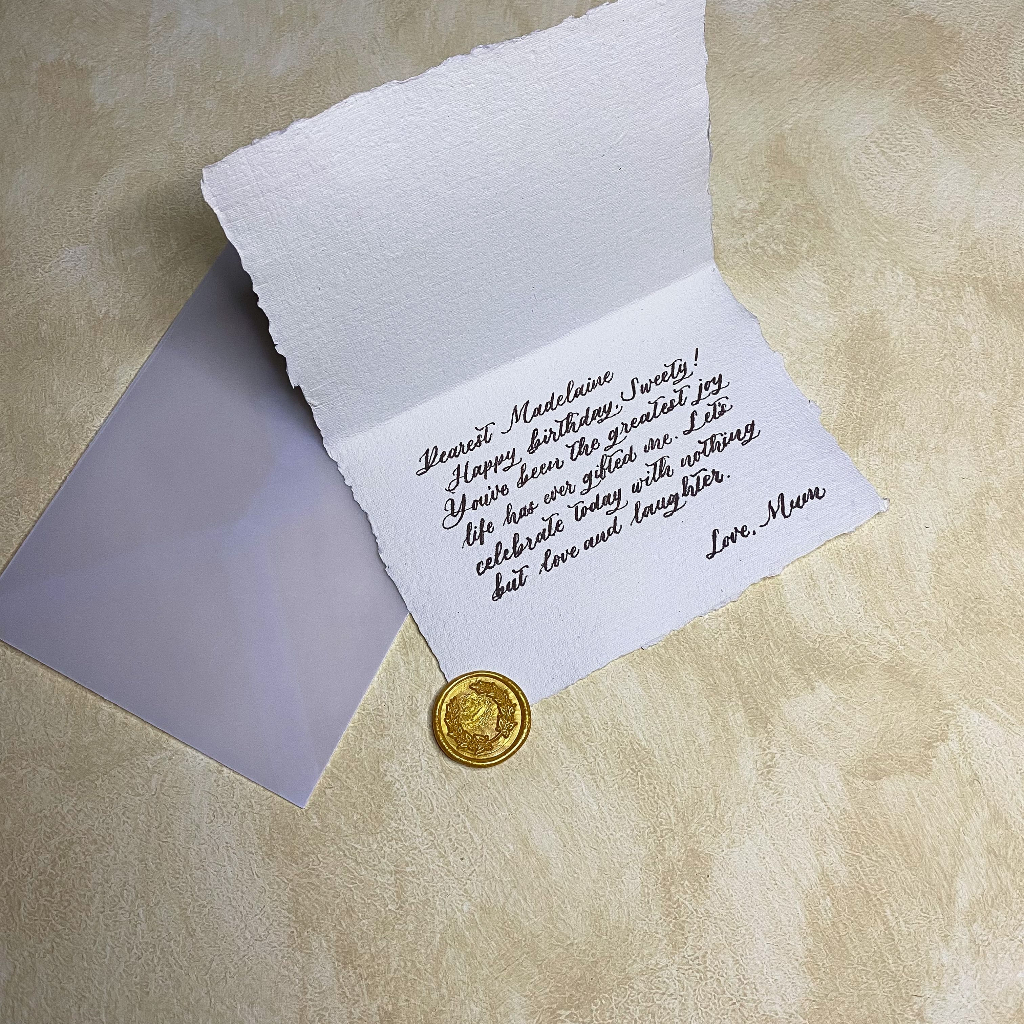 Dearest Madelaine
Happy birthday, Sweety!
You've been the greatest joy
life has ever gifted me. Let's
celebrate today with nothing
but love and laughter.
Love, Mum